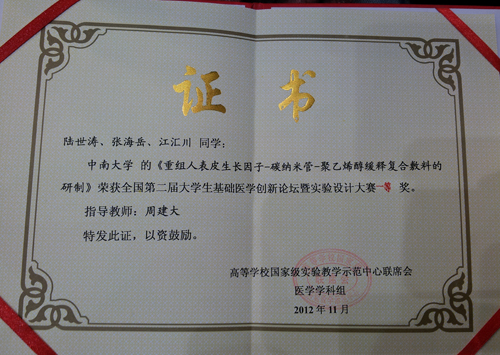 证书
陆世涛、张海岳、江汇川 同学：
中南大学 的《重组人表皮生长因子-碳纳米管-聚乙烯醇缓释复合敷料的
研制》荣获全国第二届大学生基础医学创新论坛暨实验设计大赛一等 奖。
指导教师：周建大
特发此证，以资鼓励。
高等学校国家级实验教学示范中心联席会
医学学科组
2012 年 11 月